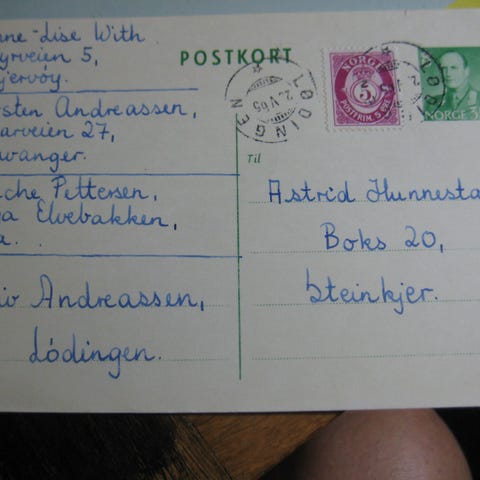 ne-Lise With
yrveien 5,
jervöy.
sten Andreassen,
arveien 27,
vanger.
che Pettersen,
a Elvebakken,
a.
iv Andreassen,
Lödingen.
POSTKORT
LØDINGEN
NORGE
5
POSTFRIM. 5 ØRE
LØD
NORGE
Til
Astrid Hunnesta
Boks 20,
Steinkjer.